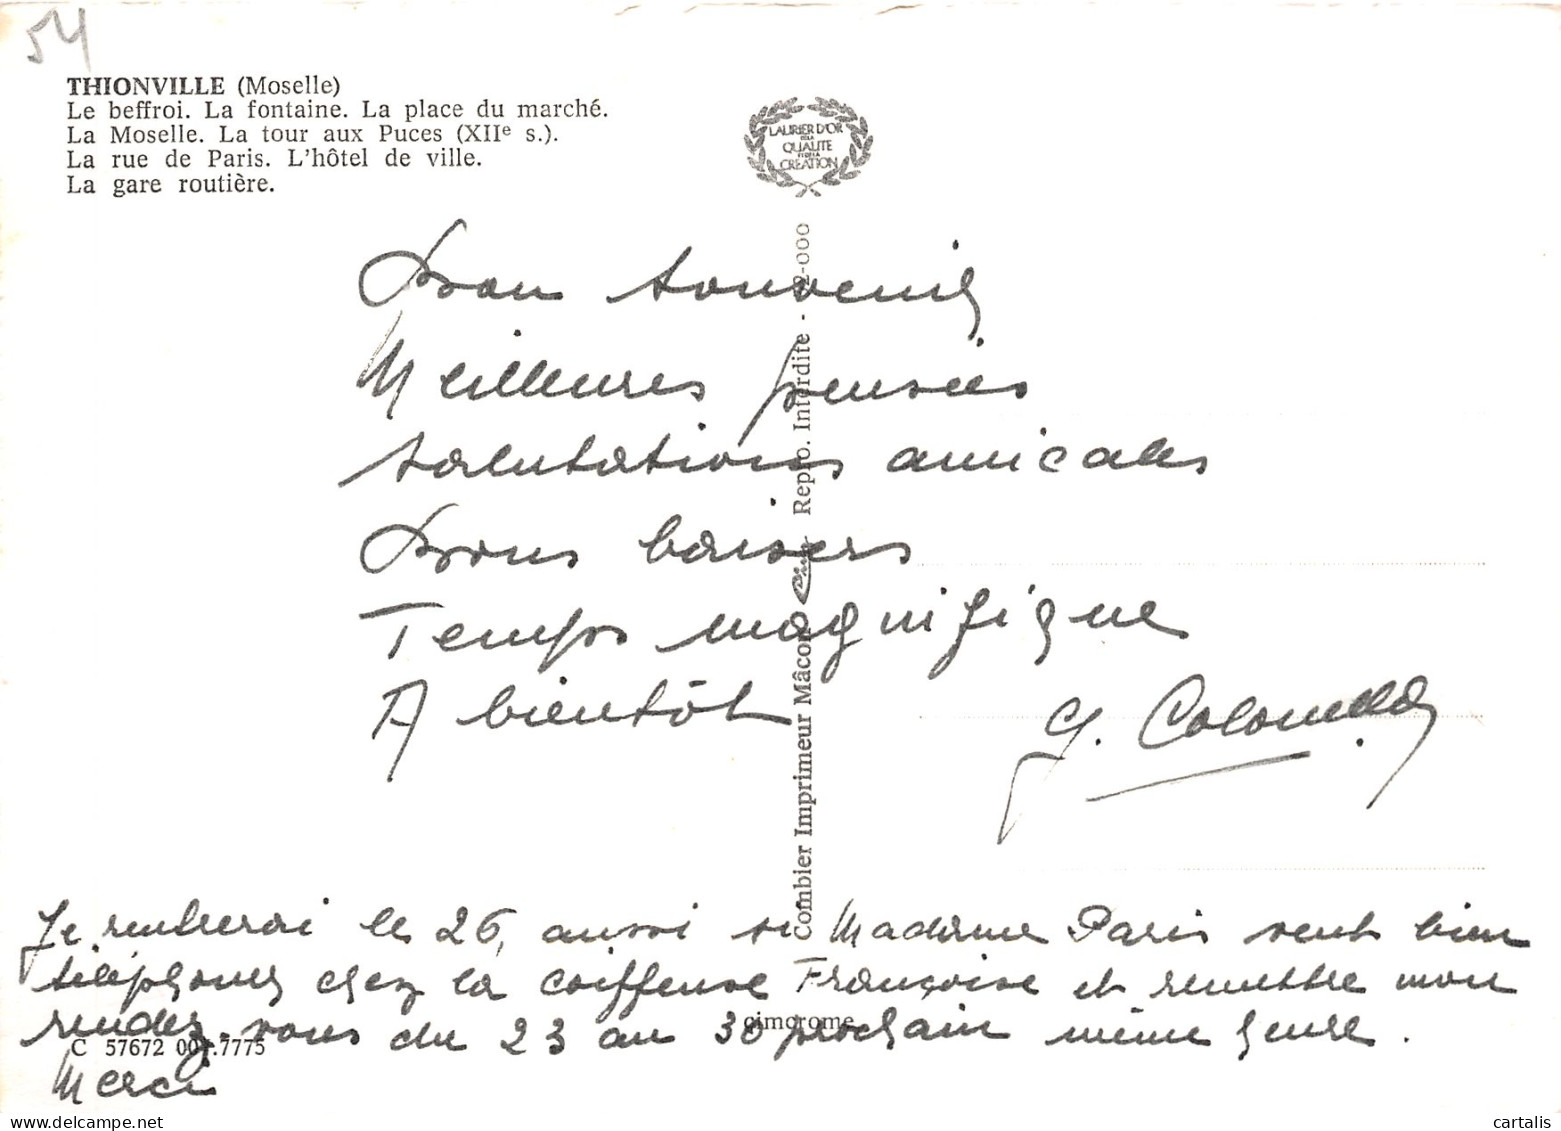 54
THIONVILLE (Moselle)
Le beffroi. La fontaine. La place du marché.
La Moselle. La tour aux Puces (XIIe s.).
La rue de Paris. L'hôtel de ville.
La gare routière.
LAURIER D'OR
DE LA
QUALITE
ET DE LA
CREATION
Bon souvenir
Meilleures pensées
salutations amicales
Bons baisers
Temps magnifique
A bientôt
G. Colomella
Combier Imprimeur Mâcon Repro. Interdite - 2-000
Je rentrerai le 26, aussi si Madame Paris veut bien
téléphoner chez la coiffeuse Françoise et remettre mon
rendez-vous du 23 au 30 prochain même heure.
Merci
cimcrome
C 57672 00 .7775
cartalis